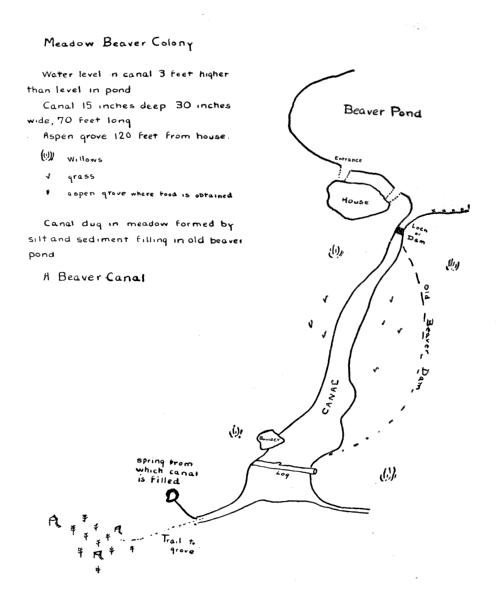 Meadow Beaver Colony
Water level in canal 3 feet higher
than level in pond
Canal 15 inches deep 30 inches
wide, 70 feet long
Aspen grove 120 feet from house.
willows
grass
aspen grove where food is obtained
Canal dug in meadow formed by
silt and sediment filling in old beaver
pond
A Beaver Canal
Beaver Pond
Entrance
House
Lock
or
Dam
Old Beaver Dam
CANAL
Boulder
Log
spring from
which canal
is filled
Trail to
grove